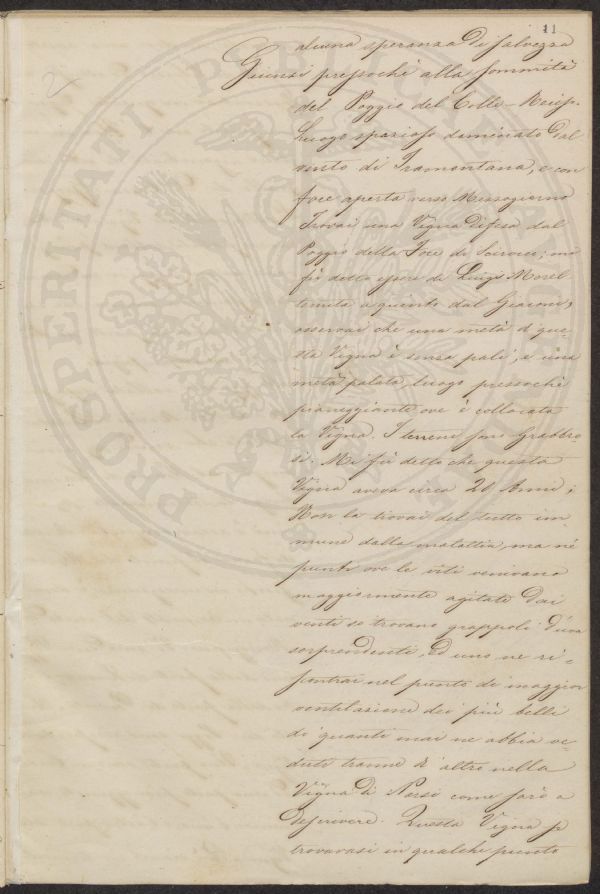 11
alcuna speranza di salvezza
Giunsi pressochè alla sommità
del Poggio del Colle-Reciso.
Luogo spazioso dominato dal
vento di Tramontana, e con
foce aperta verso Mezzogiorno
Trovai una Vigna difesa dal
Poggio della Foce di Scirocco; mi
fù detto essere di Luigi Morel
tenuta a quinto dal Giaconi,
osservai che una metà di que-
sta Vigna è senza pali, e una
metà palata, luogo pressochè
pianeggiante ove è collocata
la Vigna. I terreni sono Grabbro
si. Mi fù detto che questa
Vigna aveva circa 20 Anni;
Non la trovai del tutto im-
mune dalla malattia, ma nè
punti ove le viti venivano
maggiormente agitate dai
venti si trovano grappoli d'uva
sorprendenti, ed uno ne ri-
scontrai nel punto di maggior
ventilazione dei più belli
di quanti mai ne abbia ve-
duti tranne d'altro nella
Vigna di come sarò a
descrivere. Questa Vigna
trovavasi in qualche punto
PROSPERITATI PUBLICAE